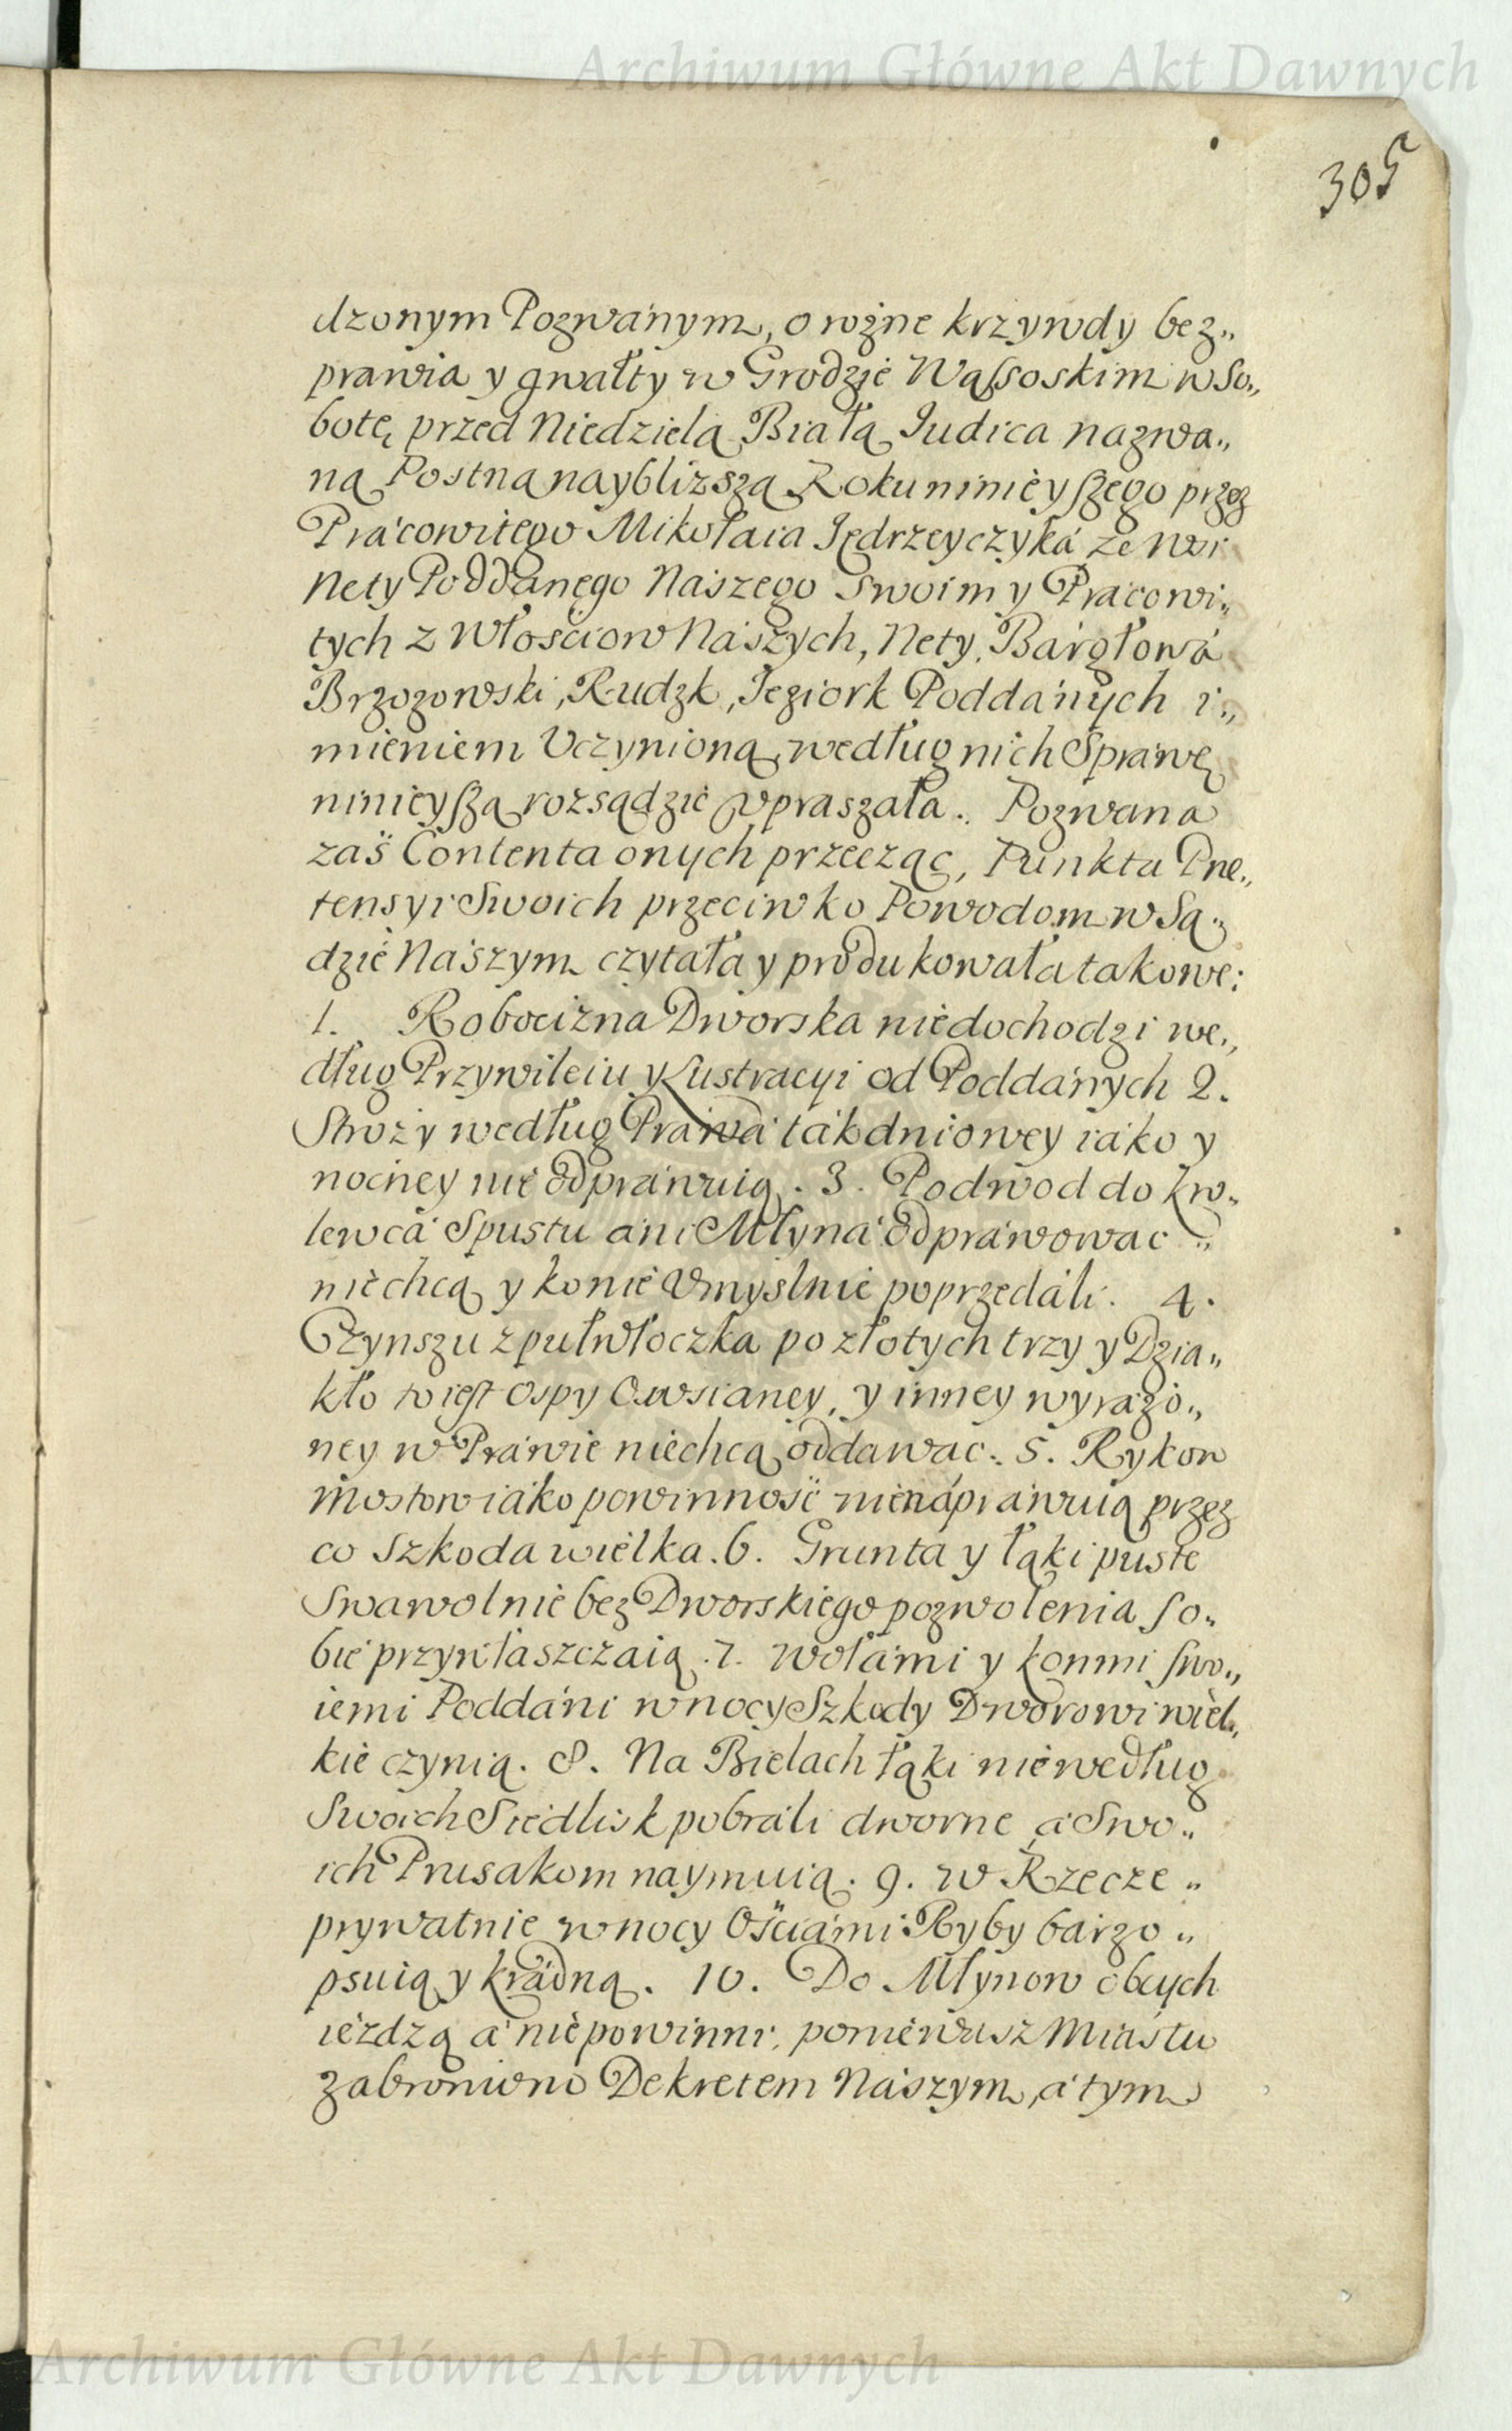 Archiwum Główne Akt Dawnych
305
dzonym Pozwánym, o rożne krzywdy bez„
prawia y gwałty w Grodzie Wąssoskim w So„
botę, przed Niedzielą Białą Judica nazwa„
ną Postną naybliższą Roku ninieyszego przez
Prácowitego Mikołaia Jędrzeyczyká ze Wsi
Nety Poddánego Nászego Swoim y Pracowi„
tych z Włościow Nászych, Nety, Bárgłowá
Brzozowski, Rudzk, Jeziork Poddánych i„
mieniem Uczynioną, według nich Spráwę
ninieyszą rozsądzić vpraszała. Pozwana
zaś Contenta onych przecząc, Punkta Pre„
tensyi Swoich przeciwko Powodom w Są„
dzie Nászym czytała y produkowała takowe:
1. Robocizna Dworska niedochodzi we„
dług Przywileiu y Lustracyi od Poddánych 2.
Stroży według Práwá ták dniowey iáko y
nocney nie odpráwuią. 3. Podwod do Kro„
lewcá Spustu áni Młyná odpráwowac „
niechcą y konie Umyslnie poprzedáli. 4.
Czynszu z pułwłoczka po złotych trzy y Dzia„
kło to iest Ospy Owsianey, y inney wyrażo„
ney w Práwie niechcą oddawac. 5. Rykow
mostow iáko powinność nienápráwuią przez
co Szkoda wielka. 6. Grunta y łąki puste
Swawolnie bez Dworskiego pozwolenia so„
bie przywłaszczaią. 7. Wołámi y konmi swo„
iemi Poddáni w nocy Szkody Dworowi wiel„
kie czynią. 8. Na Bielach łąki niewedług
Swoich Siedlisk pobráli dworne á Swo„
ich Prusakom naymuią. 9. w Rzecze „
prywatnie w nocy Ościámi Ryby bárzo „
psuią y krádną. 10. Do Młynow obcych
ieżdzą á niepowinni, poniewasz Miástu
zabroniono Dekretem Nászym, á tym
Archiwum Główne Akt Dawnych